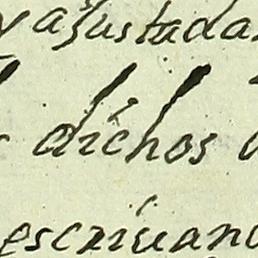 y ajustadas
dichos
escriuano